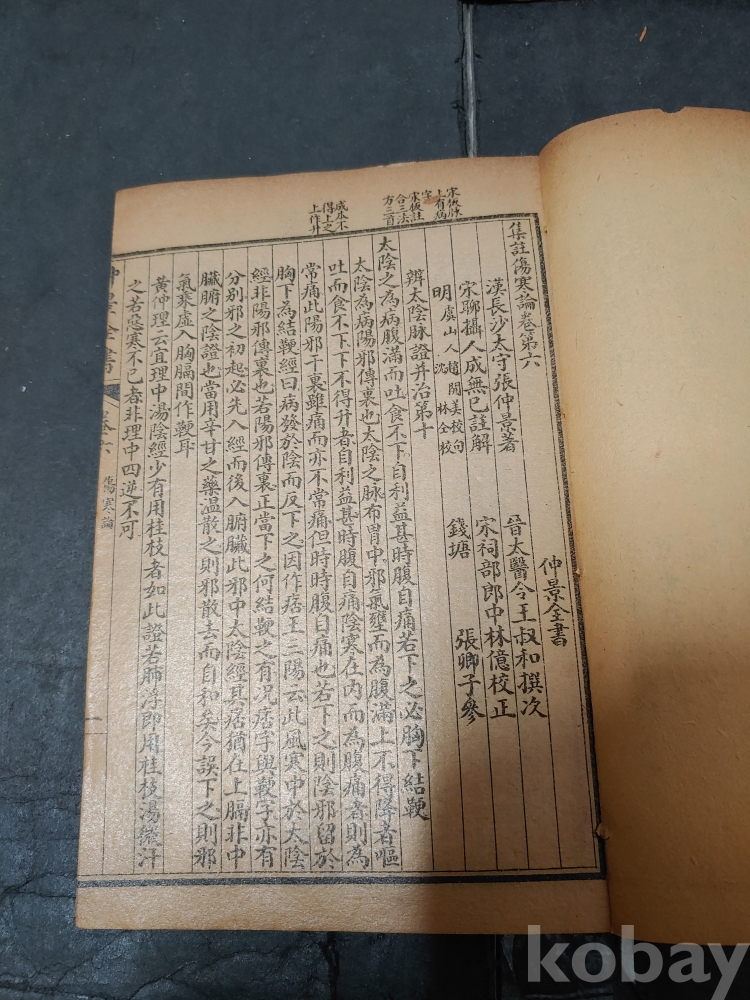 宋板脉
上有病
字
宋板註
合三法
方三首
成本不
得上之
上作升
集註傷寒論卷第六
仲景全書
漢長沙太守張仲景著
晉太醫令王叔和撰次
宋聊攝人成無已註解
宋祠部郎中林億校正
明虞山人趙開美校句
沈 林仝校
錢塘 張卿子參
辨太陰脉證并治第十
太陰之為病腹滿而吐食不下自利益甚時腹自痛若下之必胸下結鞕
太陰為病陽邪傳裏也太陰之脉布胃中邪氣壅而為腹滿上不得降者嘔
吐而食不下下不得升者自利益甚時腹自痛陰寒在内而為腹痛者則為
常痛此陽邪干裏雖痛而亦不常痛但時時腹自痛也若下之則陰邪留於
胸下為結鞕經曰病發於陰而反下之因作痞王三陽云此風寒中於太陰
經非陽邪傳裏也若陽邪傳裏正當下之何結鞕之有况痞字與鞕字亦有
分别邪之初起必先入經而後入腑臟此邪中太陰經其痞猶在上膈非中
臟腑之陰證也當用辛甘之藥温散之則邪散去而自和矣今誤下之則邪
氣乘虛入胸膈間作鞕耳
黄仲理云宜理中湯陰經少有用桂枝者如此證若脉浮即用桂枝湯微汗
之若惡寒不已者非理中四逆不可
仲景全書 卷六 傷寒論 一
kobay